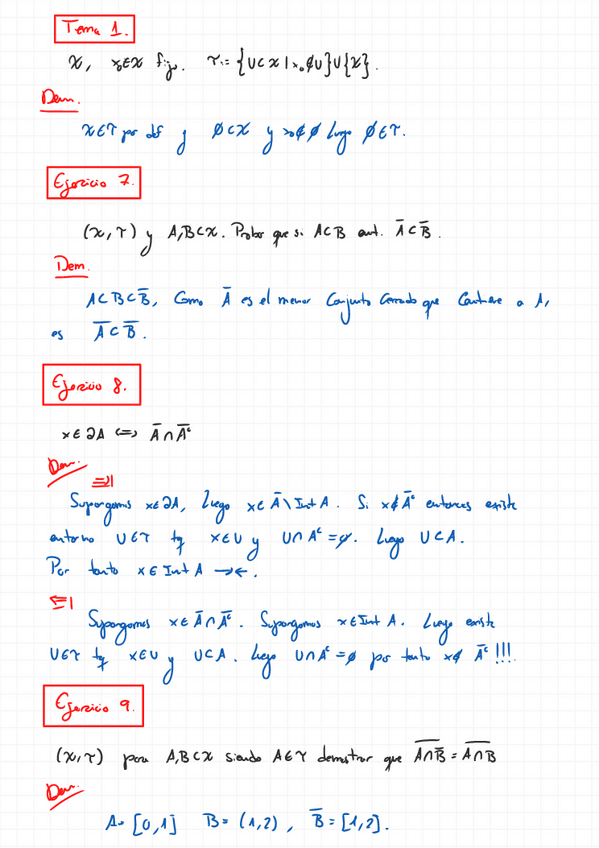 Tema 1.
X, x₀∈X fijo. τ:= {U⊂X | x₀∉U}∪{X}.
Dem.
X∈τ por def y ∅⊂X y x₀∉∅ luego ∅∈τ.
Ejercicio 7.
(X,τ) y A,B⊂X. Probar que si A⊂B ent. Ā⊂B̄.
Dem.
A⊂B⊂B̄, Como Ā es el menor Conjunto Cerrado que Contiene a A,
es Ā⊂B̄.
Ejercicio 8.
x∈∂A ⇔ Ā∩A̅ᶜ
Dem.
⇒|
Supongamos x∈∂A, luego x∈Ā\Int A. Si x∉A̅ᶜ entonces existe
entorno U∈τ tq x∈U y U∩Aᶜ=∅. Luego U⊂A.
Por tanto x∈Int A →←.
⇐|
Supongamos x∈Ā∩A̅ᶜ. Supongamos x∈Int A. Luego existe
U∈τ tq x∈U y U⊂A. Luego U∩Aᶜ=∅ por tanto x∉A̅ᶜ!!!
Ejercicio 9.
(X,τ) para A,B⊂X siendo A∈τ demostrar que \overline{A∩B̄} = \overline{A∩B}
Dem.
A=[0,1] B=(1,2), B̄=[1,2].